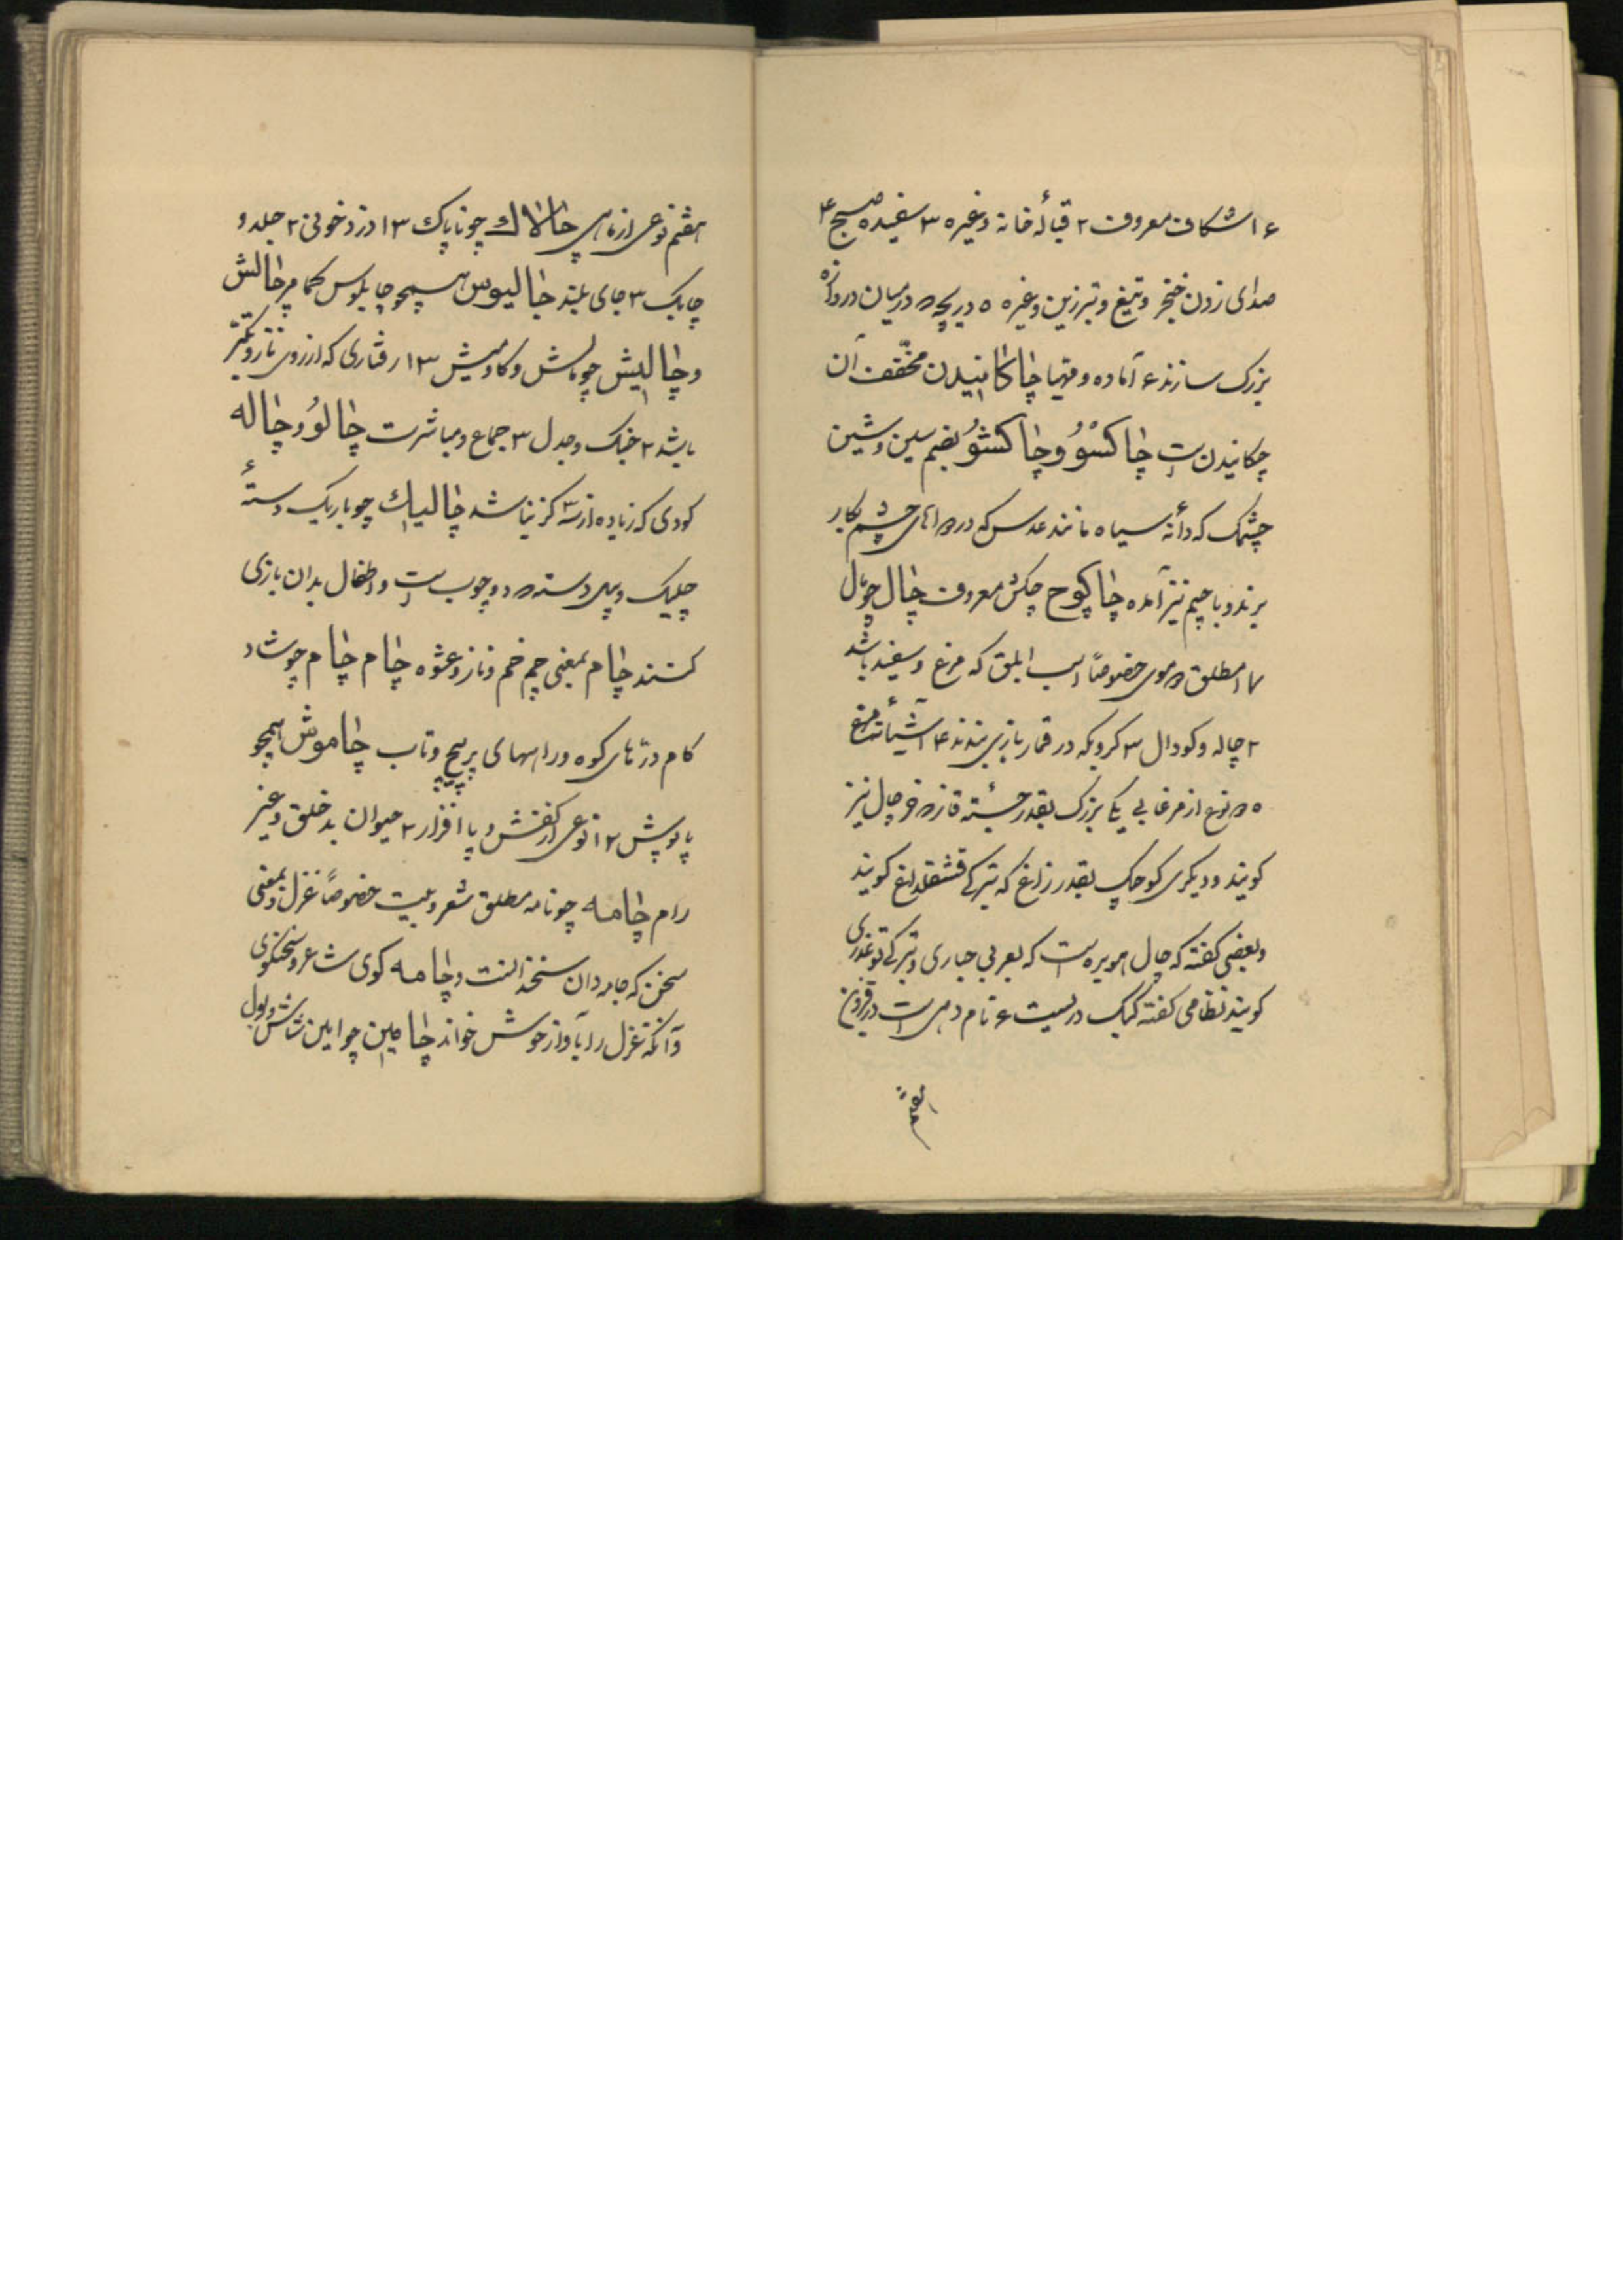 ۶ ۱ شکاف معروف ۲ قبالهٔ خانه و غیره ۳ سفیده صبح ۴
صدای زدن خنجر و تیغ و تبرزین و غیره ۵ دریچه در میان دروازه
بزرک سازند ۶ آماده و مهیا چاکانیدن مخفف آن
چکانیدن ست چاکسُو و چاکشُو بضم سین و شین
چشمک که دانهٔ سیاه مانند عدس که در دواهای چشم بکار
برند و با جیم نیز آمده چاکوچ چکش معروف چال چو بال
۷ ۱ مطلق دو موی خصوصاً اسب ابلق که سرخ و سفید باشد
۲ چاله و کودال ۳ کرویکه در قمار بازی بندند ۴ آشیانهٔ مرغ
۵ نوع از مرغابی یکی بزرک بقدر جثهٔ قاز خرچال نیز
کویند و دیکری کوچک بقدر زاغ که بترکی قشقلداغ کویند
و بعضی کفته که چال هوبره ست که بعربی حباری و بترکی توغدری
کویند نظامی کفته کبک دریست ۶ نام دهی است در قزوین
هفتم
هفتم نوعی از ماهی چالاك چو ناپاک ۳ ۱ دزد خونی ۲ جلد و
چابک ۳ جای بلند چالیوس همچو چاپلوس کمامر چالش
و چالیش چو بالش و کاومیش ۳ ۱ رفتاری که از روی ناز و تکبر
باشد ۲ جنک و جدل ۳ جماع و مباشرت چالوُ و چاله
کودی که زیاده از سه کز نباشد چالیك چو باریک دستهٔ
چلیک و پل دسته دو چوب ست و اطفال بدان بازی
کنند چام بمعنی چم خم و ناز و عشوه چام چام چو شاد
کام درّهای کوه و راههای پر پیچ و تاب چاموش همچو
پاپوش ۲ ۱ نوعی از کفش و پا افزار ۲ حیوان بد خلق و غیر
رام چامه چو نامه مطلق شعر و بیت خصوصاً غزل و بمعنی
سخن که چامه دان سخندانست و چامه کوی شاعر و سخنکوی
و آنکه غزل را بآواز خوش خواند چامین چو آیین شاش و بول